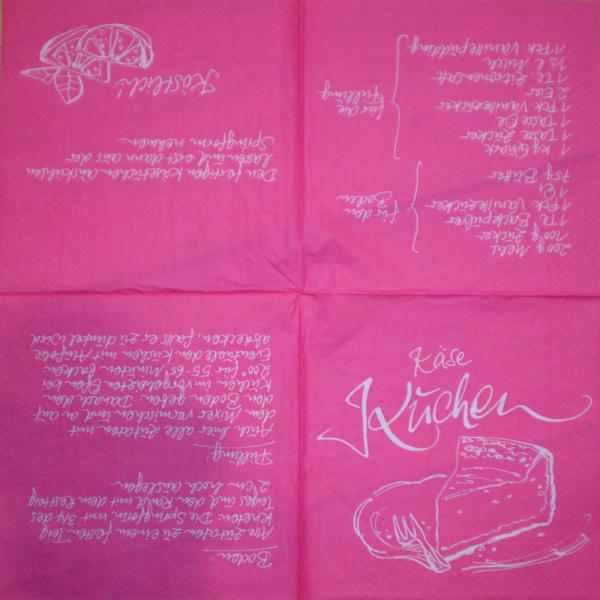 Käse
Kuchen
200g Mehl
100g Zucker
1 TL Backpulver
1 Pck Vanillezucker
1 Ei
75g Butter
für den
Boden
1 kg Quark
1 Tasse Zucker
1 Tasse Öl
1 Pck Vanillezucker
2 Eier
1 TL Zitronensaft
1/2 l Milch
1 Pck Vanillepudding
für die
Füllung
Boden:
Alle Zutaten zu einem festen Teig
kneten. Die Springform mit 3/4 des
Teiges und den Rand mit dem Restteig
2 cm hoch auslegen.
Füllung:
Auch hier alle Zutaten mit
dem Mixer vermischen und auf
den Boden geben. Danach den
Kuchen im vorgeheizten Ofen bei
200° für 55-65 Minuten backen.
Eventuell den Kuchen mit Alufolie
abdecken, falls er zu dunkel wird.
Den fertigen Käsekuchen auskühlen
lassen und erst dann aus der
Springform nehmen.
Köstlich!